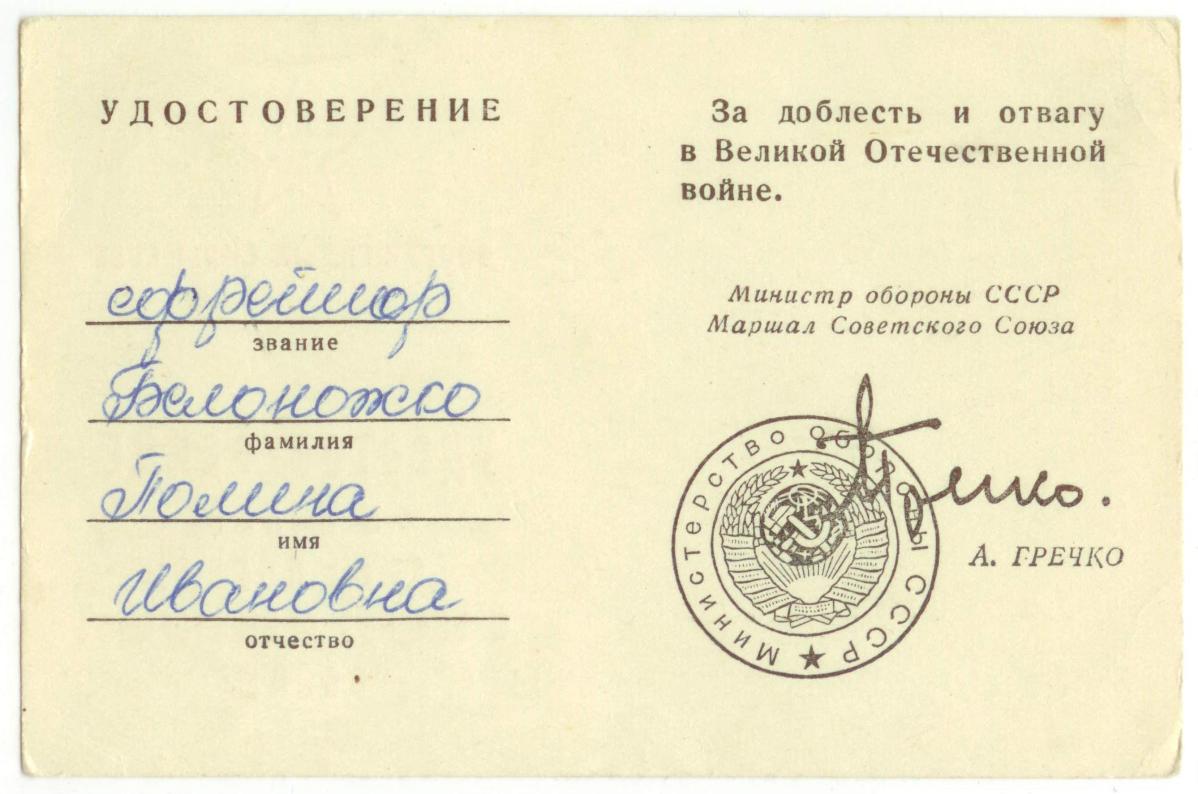 УДОСТОВЕРЕНИЕ
ефрейтор
звание
Белоножко
фамилия
Полина
имя
Ивановна
отчество
За доблесть и отвагу
в Великой Отечественной
войне.
Министр обороны СССР
Маршал Советского Союза
МИНИСТЕРСТВО ОБОРОНЫ СССР
Гречко.
А. ГРЕЧКО